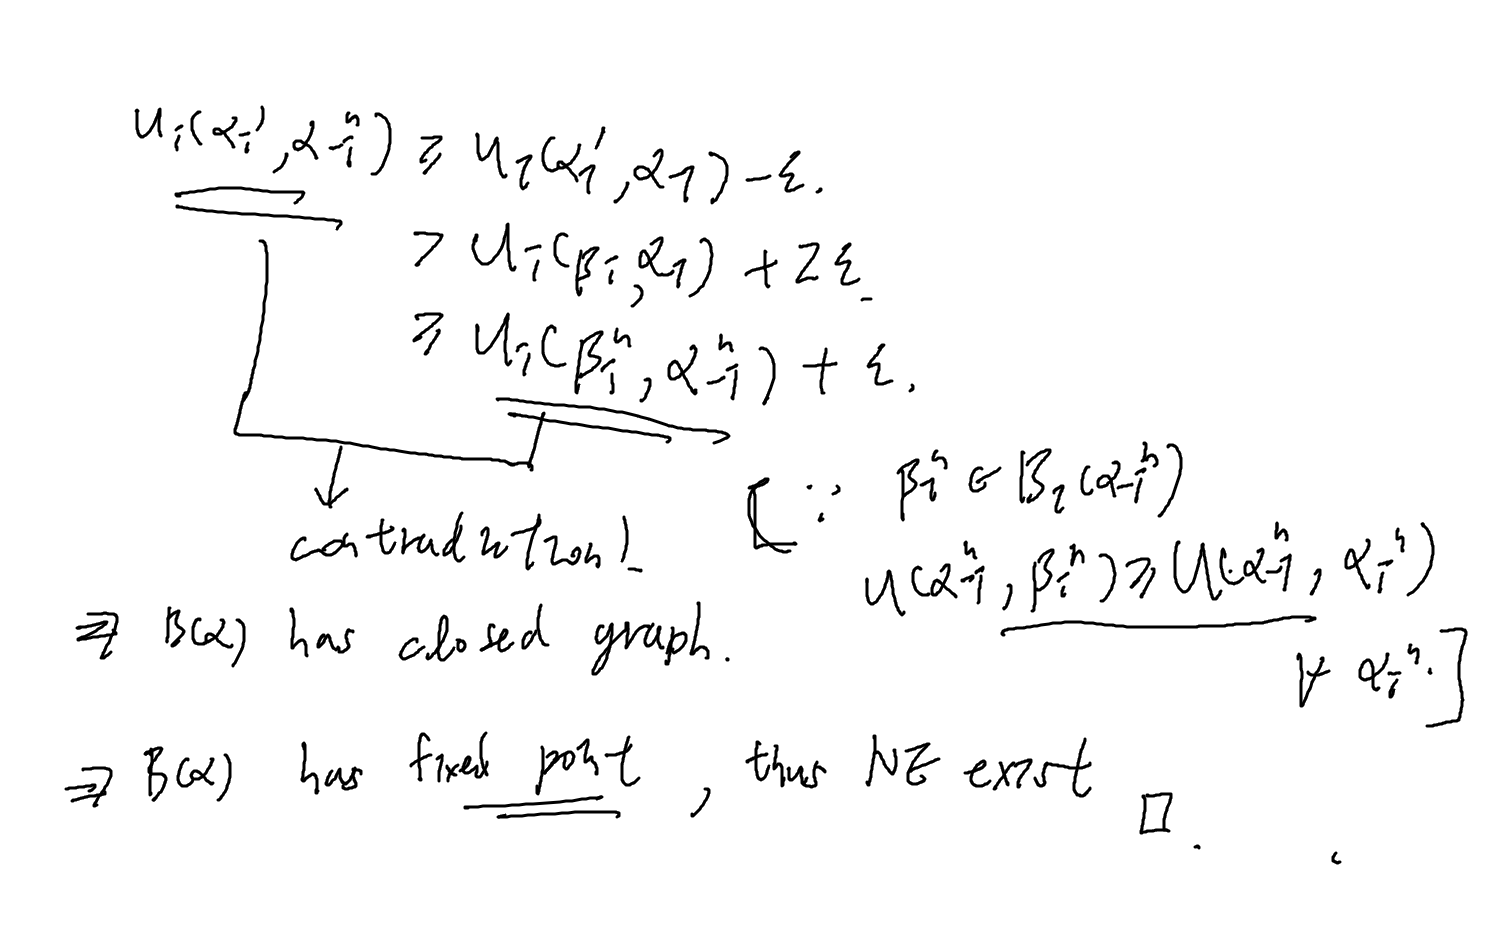 u_i(α_i', α_{-i}^n) ≥ u_i(α_i', α_{-i}) - ε.
> u_i(β_i, α_{-i}) + 2ε.
≥ u_i(β_i^n, α_{-i}^n) + ε.
contradiction!
[∵ β_i^n ∈ B_i(α_{-i}^n)
u(α_{-i}^n, β_i^n) ≥ u(α_{-i}^n, α_i^n)
∀ α_i^n.]
⇒ B(α) has closed graph.
⇒ B(α) has fixed point, thus NE exist □.